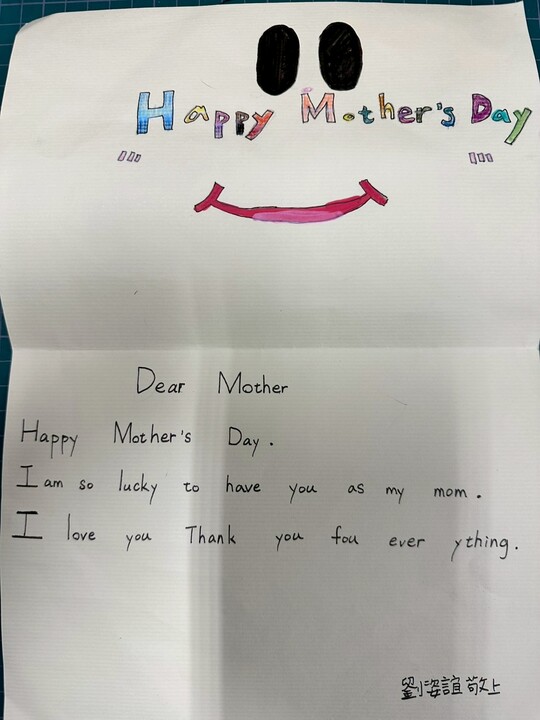 Happy Mother's Day
Dear Mother
Happy Mother's Day.
I am so lucky to have you as my mom.
I love you Thank you fou ever ything.
劉姿誼 敬上